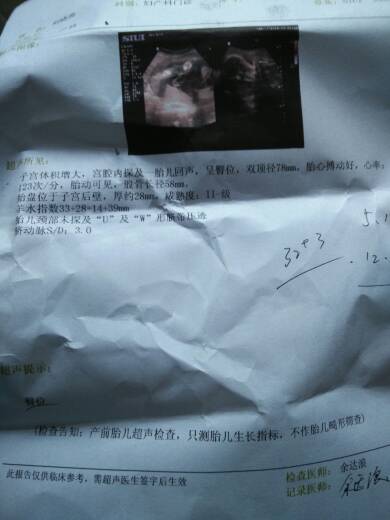 妇产科门诊
SIUI
超声所见:
子宫体积增大, 宫腔内探及一胎儿回声, 呈臀位, 双顶径78mm, 胎心搏动好, 心率:
123次/分, 胎动可见, 股骨长径58mm,
胎盘位于子宫后壁, 厚约28mm, 成熟度: II-级
羊水指数33+28+14+39mm
胎儿颈部未探及“U”及“W”形脐带压迹
脐动脉S/D: 3.0
32+3
5.1
12.
超声提示:
臀位
(检查告知: 产前胎儿超声检查, 只测胎儿生长指标, 不作胎儿畸形筛查)
此报告仅供临床参考, 需超声医生签字后生效
检查医师: 余达浪
记录医师: